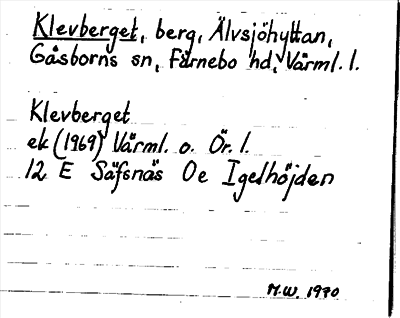 Klevberget, berg, Älvsjöhyttan,
Gåsborns sn, Färnebo hd, Värml. l.
Klevberget
ek (1969) Värml. o. Ör. l.
12 E Säfsnäs Oe Igelhöjden
M.W. 1970